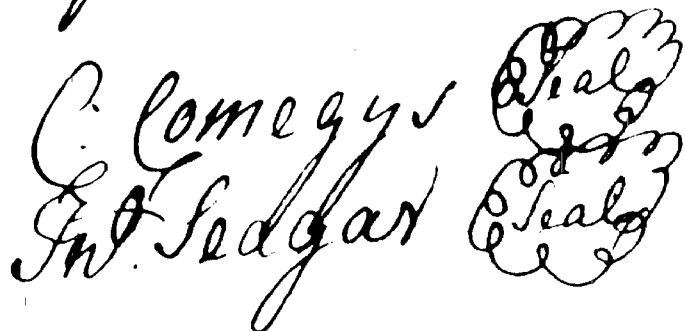 C. Comegys Seal
Jnº. Seagar Seal